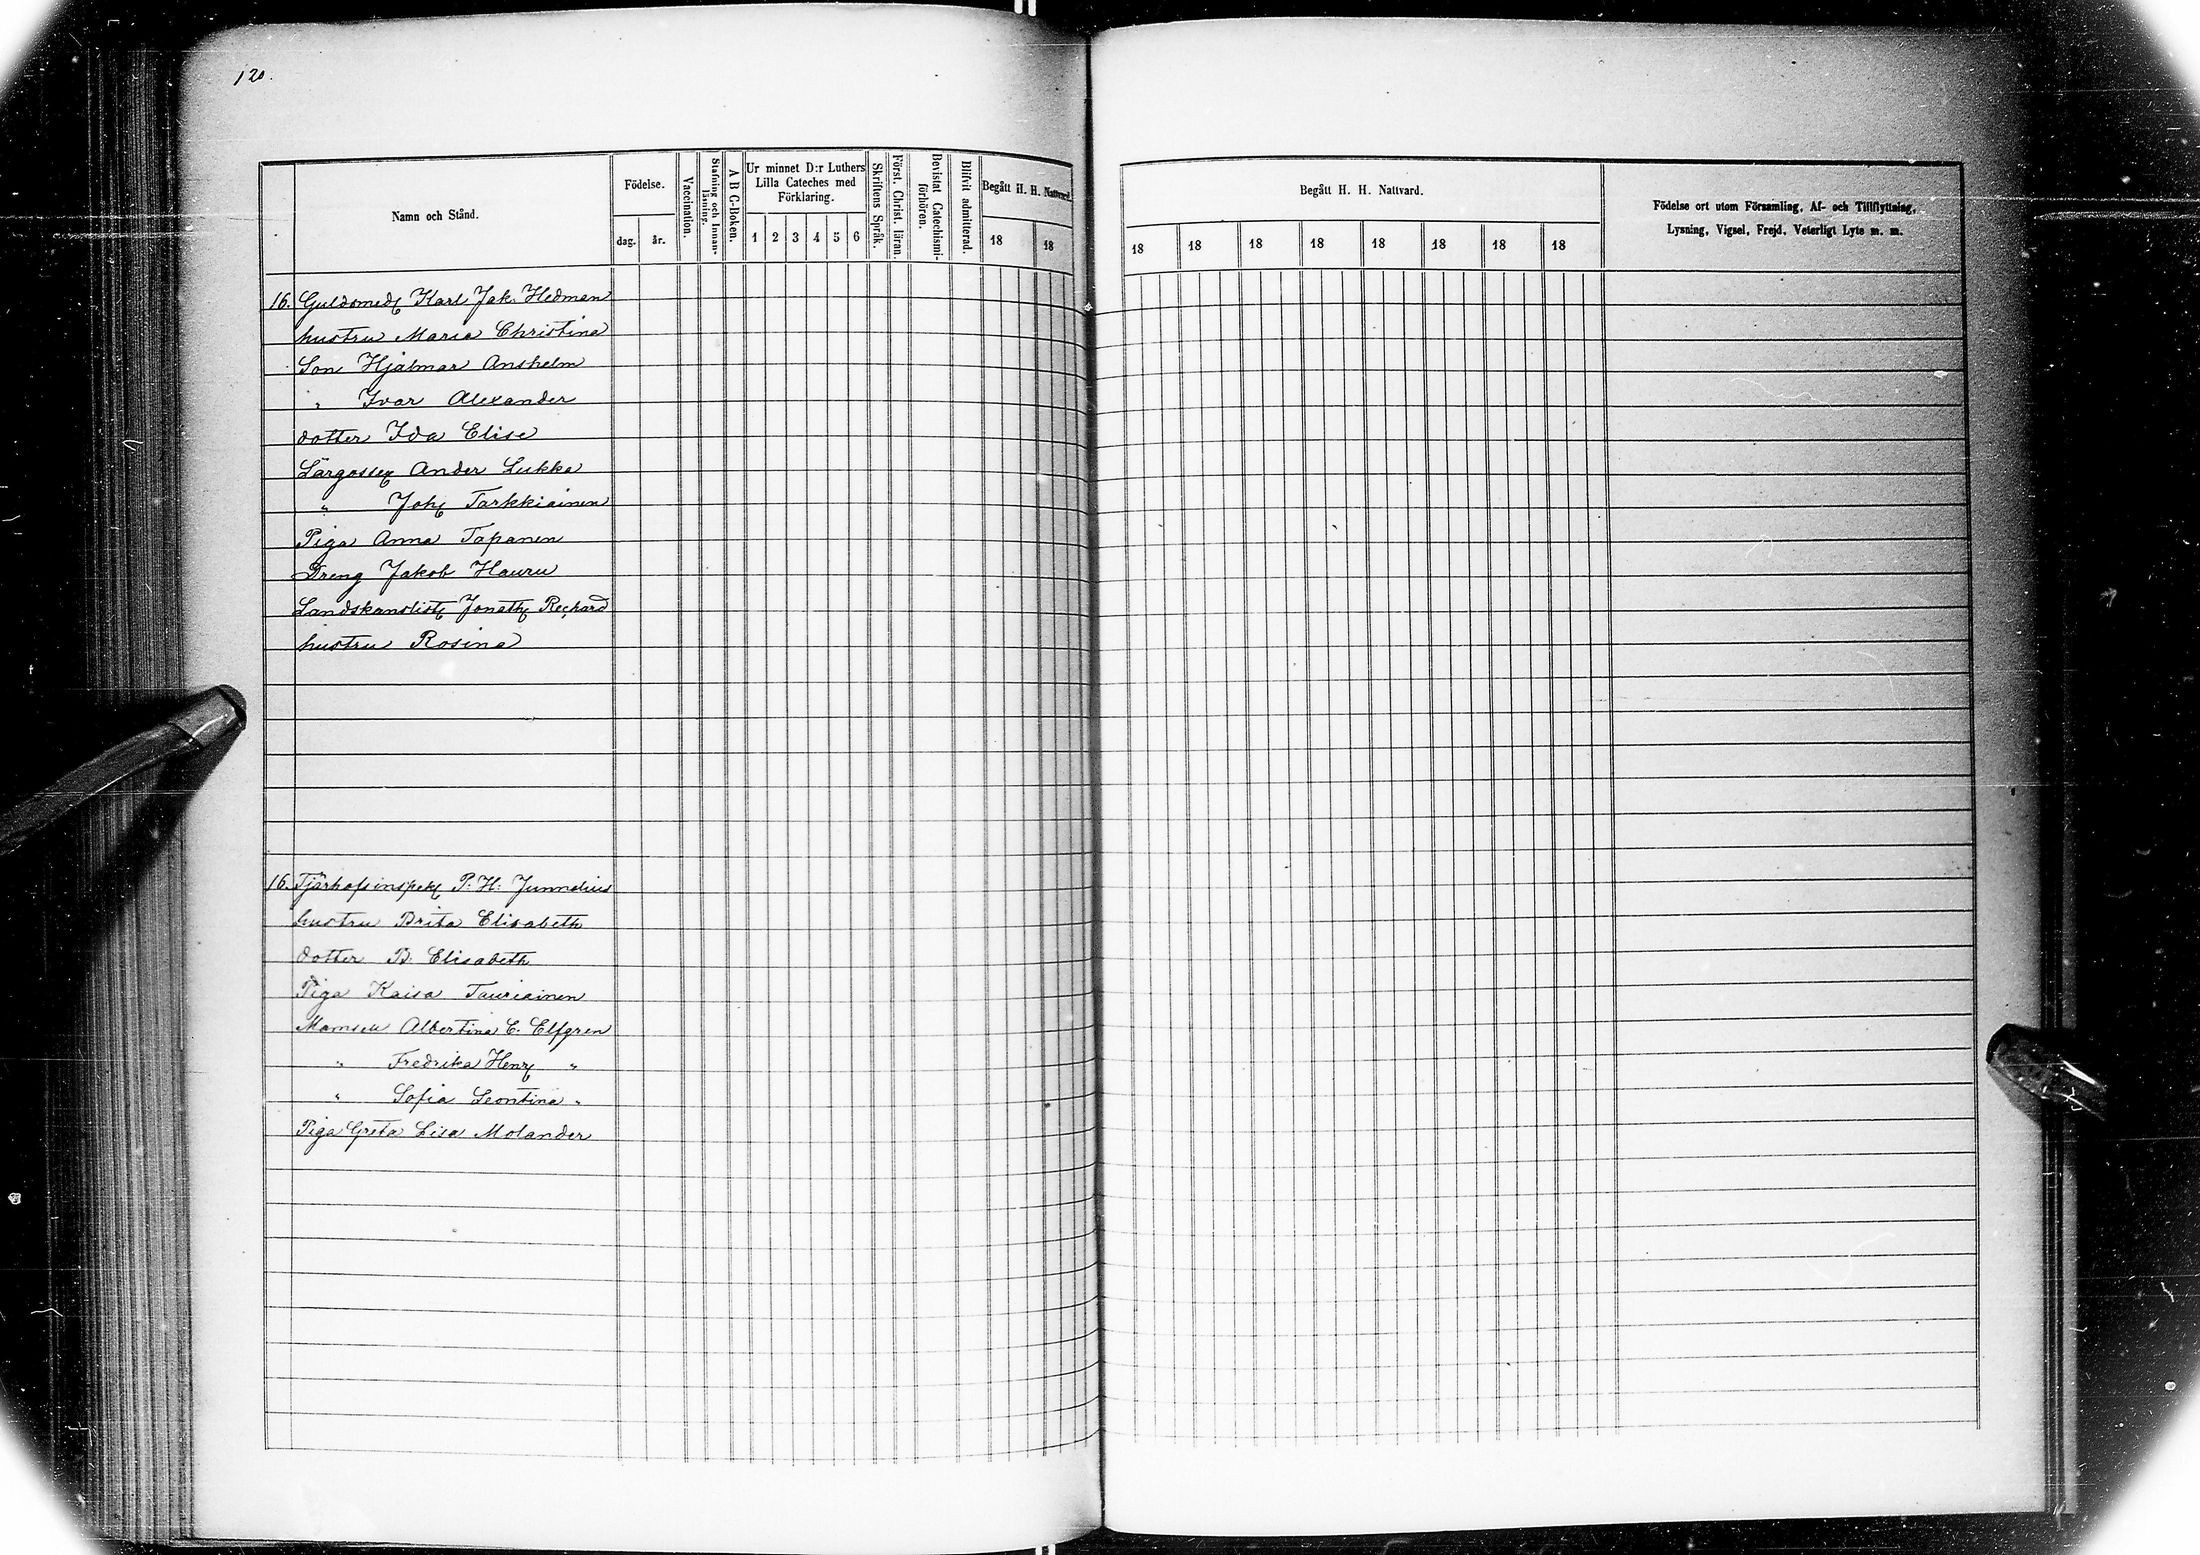 120.
Namn och Stånd.
Födelse.
dag.
år.
Vaccination.
Stafning och Innan-
läsning.
A B C-Boken.
Ur minnet D:r Luthers
Lilla Cateches med
Förklaring.
1 2 3 4 5 6
Skriftens Språk.
Först. Christ. läran.
Bevistat Catechismi-
förhören.
Blifvit admitterad.
Begått H. H. Nattvard.
18 18
Begått H. H. Nattvard.
18 18 18 18 18 18 18 18
Födelse ort utom Församling, Af- och Tillflyttning,
Lysning, Vigsel, Frejd, Veterligt Lyte m. m.
16. Guldsmed Karl Jak. Hedman
hustru Maria Christina
Son Hjalmar Anshelm
" Ivar Alexander
dotter Ida Elise
Lärgosse Ander Lukka
" Joh Tarkkiainen
Piga Anna Tapanen
Dreng Jakob Hauru
Landskanslist Jonath Rechard
hustru Rosina
16. Tjärhofsinspek P. H. Junnelius
hustru Brita Elisabeth
dotter B. Elisabeth
Piga Kaisa Tauriainen
Mamsell Albertina C. Elfgren
" Fredrika Henr "
" Sofia Leontina "
Piga Greta Lisa Molander